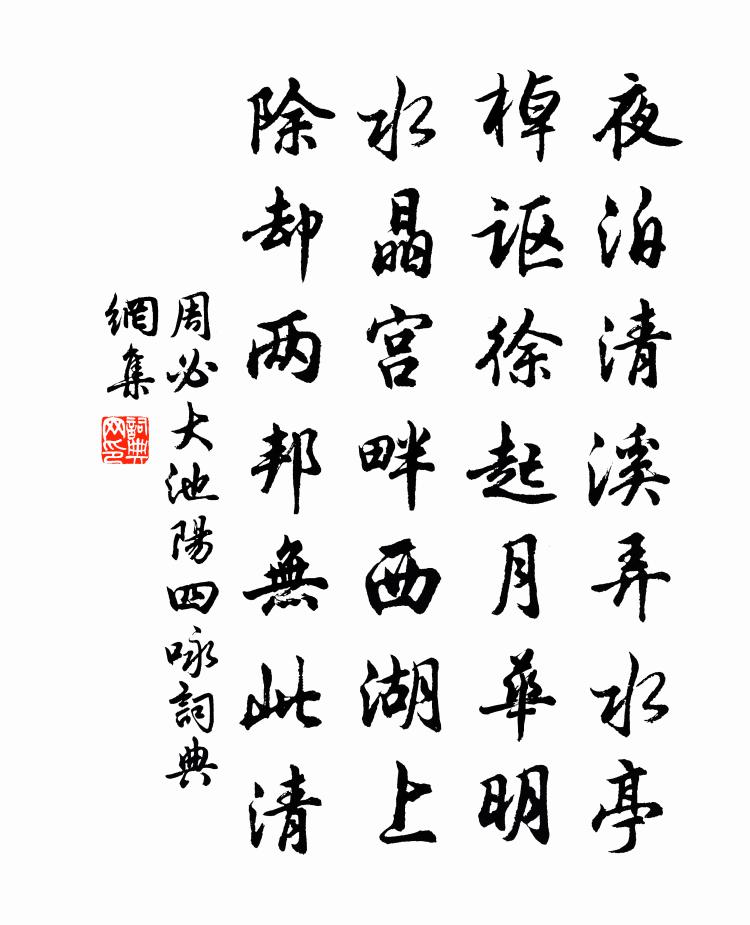 夜泊清溪弄水亭
棹讴徐起月華明
水晶宫畔西湖上
除却两邦無此清
周必大池陽四咏詞典
網集
詞典
网印